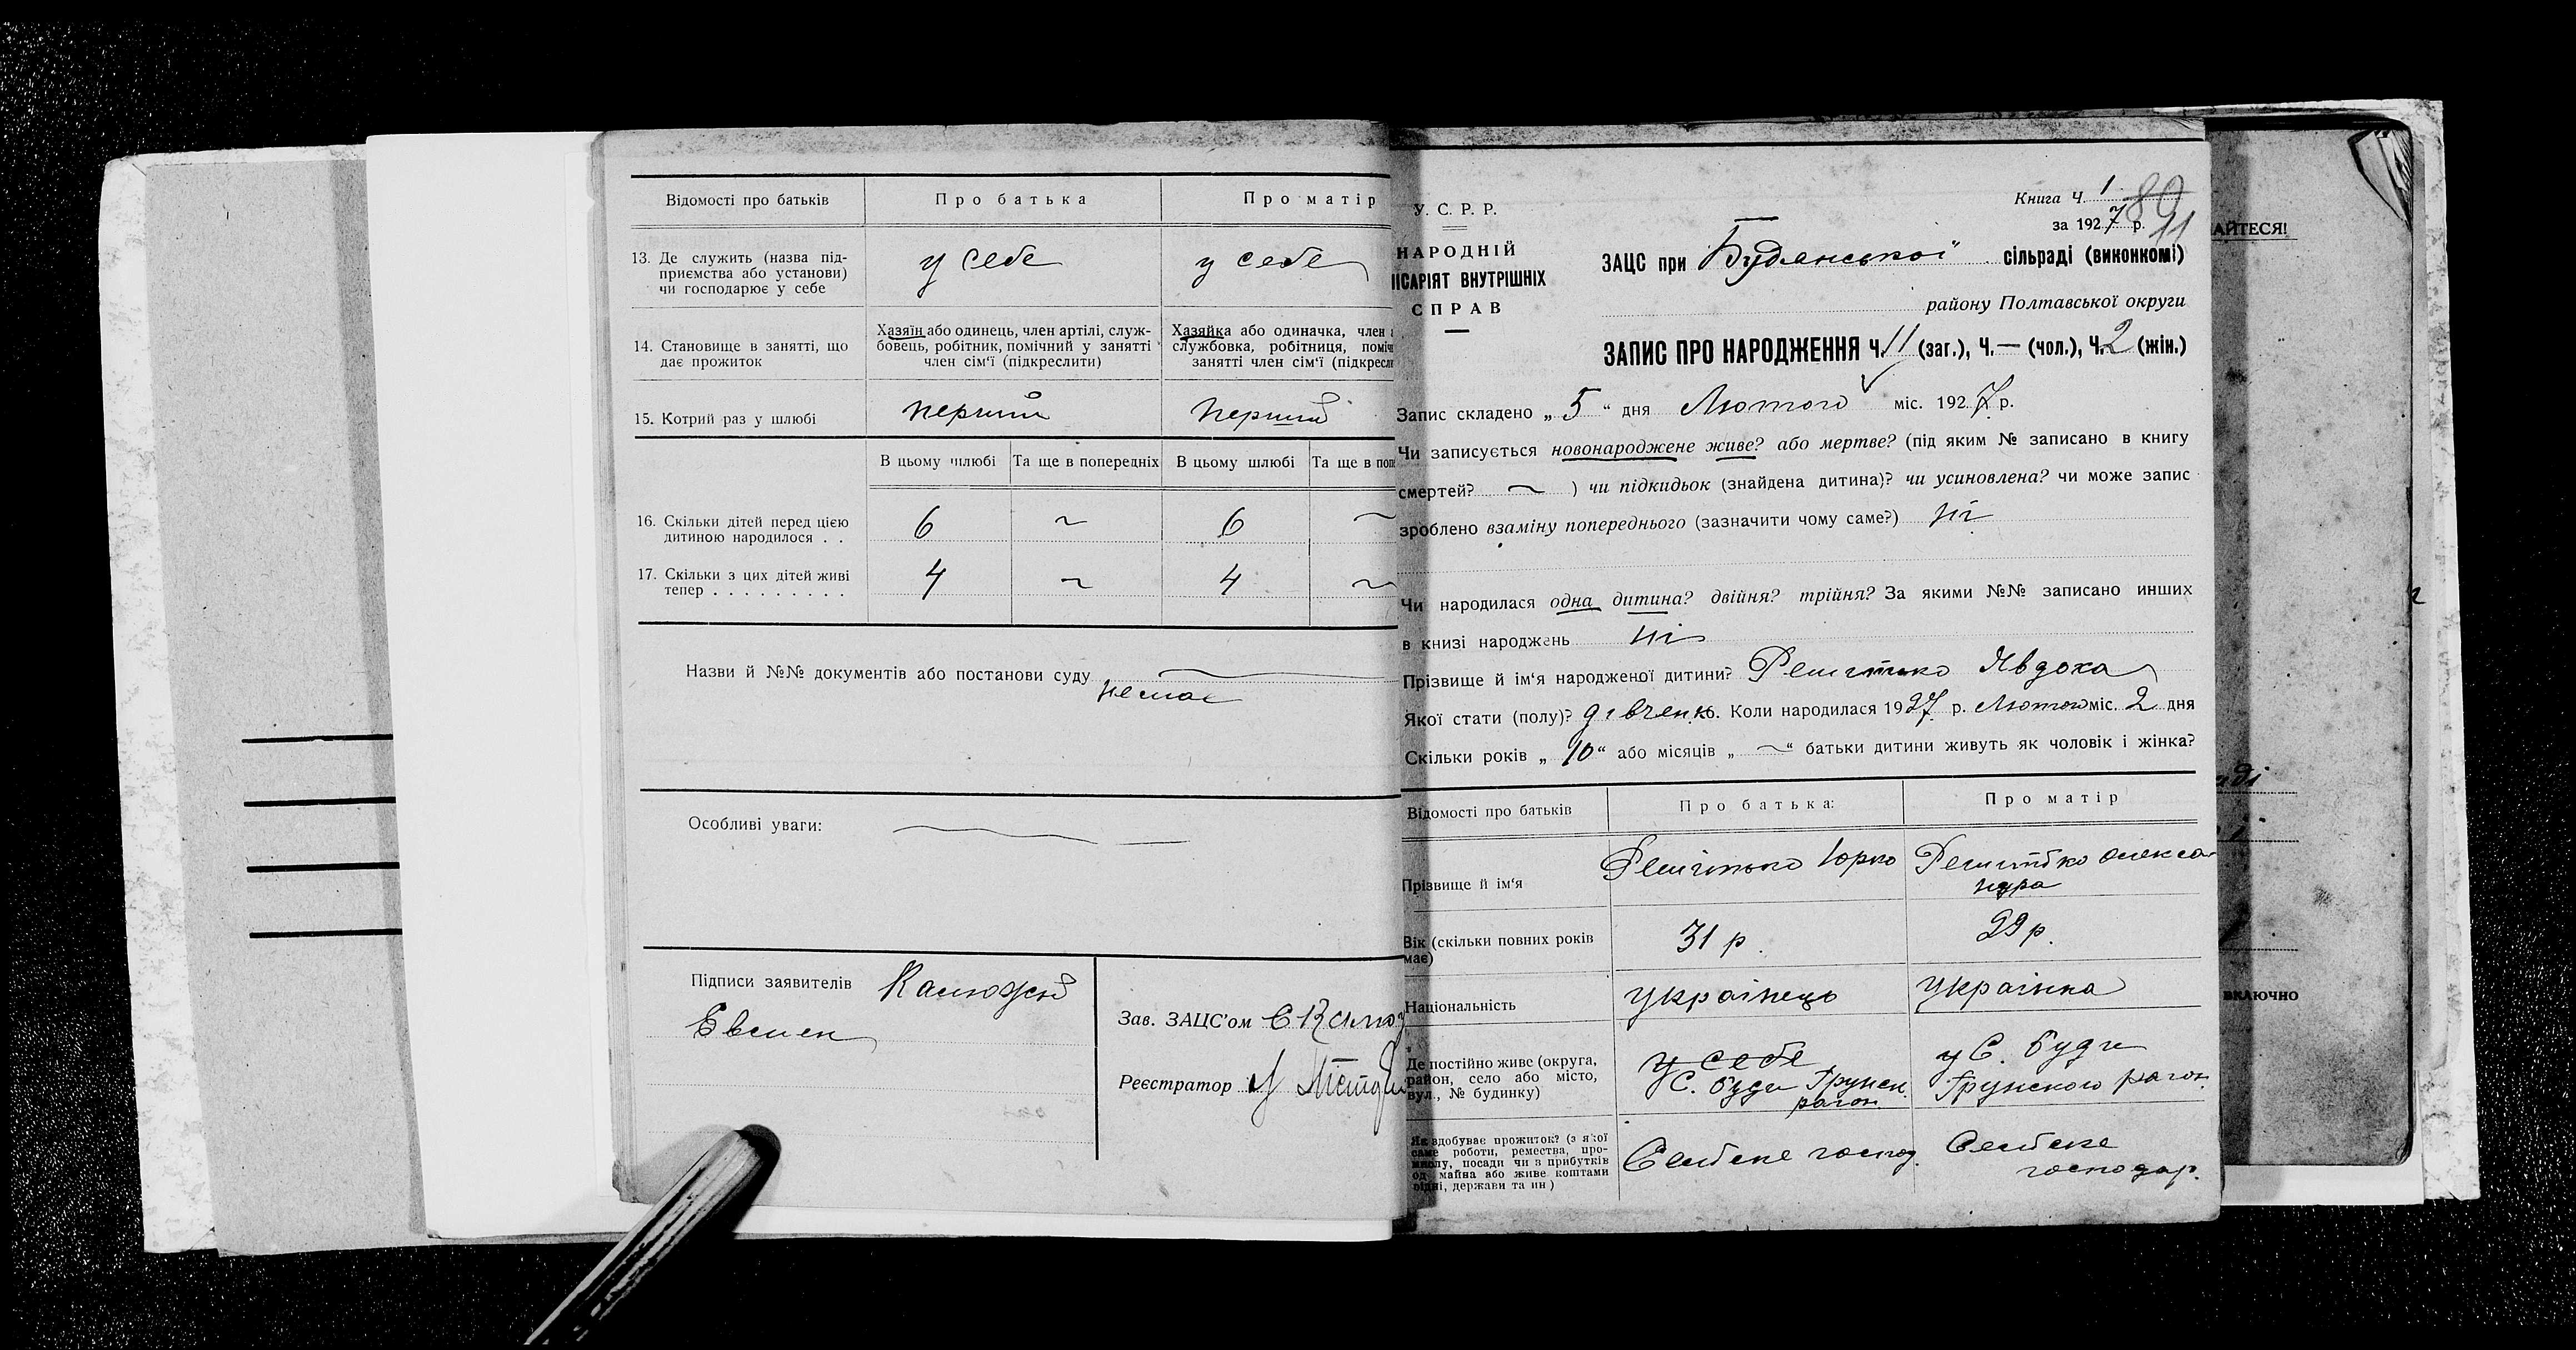 Відомості про батьків
Про батька
Про матір
13. Де служить (назва під-
приємства або установи)
чи господарює у себе
у себе
у себе
14. Становище в занятті, що
дає прожиток
Хазяїн або одинець, член артілі, служ-
бовець, робітник, помічний у занятті
член сім'ї (підкреслити)
Хазяйка або одиначка, член
службовка, робітниця, поміч
занятті член сім'ї (підкресл
15. Котрий раз у шлюбі
перший
перший
В цьому шлюбі
Та ще в попередніх
В цьому шлюбі
Та ще в поп
16. Скільки дітей перед цією
дитиною народилося . .
6 ~ 6 ~
17. Скільки з цих дітей живі
тепер . . . . . . . . .
4 ~ 4 ~
Назви й №№ документів або постанови суду
немає
Особливі уваги:
Підписи заявителів
Евмен
Зав. ЗАЦС'ом
Реєстратор
У. С. Р. Р.
НАРОДНІЙ
ІСАРІЯТ ВНУТРІШНІХ
СПРАВ
Книга Ч. 1
80
за 1927 р. 11
ЗАЦС при Будянської сільраді (виконкомі)
району Полтавської округи
ЗАПИС ПРО НАРОДЖЕННЯ Ч. 11 (заг.), Ч. — (чол.), Ч. 2 (жін.)
Запис складено „ 5 “ дня Лютого міс. 1927 р.
Чи записується новонароджене живе? або мертве? (під яким № записано в книгу
смертей? ~ ) чи підкидьок (знайдена дитина)? чи усиновлена? чи може запис
зроблено взаміну попереднього (зазначити чому саме?) ні
Чи народилася одна дитина? двійня? трійня? За якими №№ записано инших
в книзі народжень ні
Прізвище й ім'я народженої дитини? Решітько Явдоха
Якої стати (полу)? дівченко. Коли народилася 1927 р. Лютого міс. 2 дня
Скільки років „ 10 “ або місяців „ ~ “ батьки дитини живуть як чоловік і жінка?
Відомості про батьків
Про батька:
Про матір
Прізвище й ім'я
Решітько Юрко
Решітько Олекса-
ндра
Вік (скільки повних років
має)
31 р.
29 р.
Національність
українець
українка
Де постійно живе (округа,
район, село або місто,
вул., № будинку)
у себе
С. Буди Грунськ.
район.
у С. Буди
Грунского район.
Як здобуває прожиток? (з якої
саме роботи, ремества, про-
мислу, посади чи з прибутків
од майна або живе коштами
рідні, держави та ин)
Сельське господ.
Сельске
господар.
АЙТЕСЯ!
аді
ї
включно